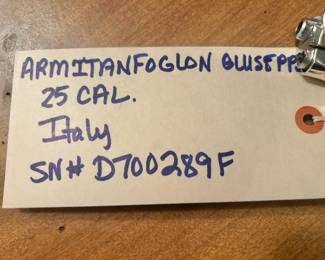 ARMITANFOGLON GUISEPPE
25 CAL.
Italy
SN# D700289F